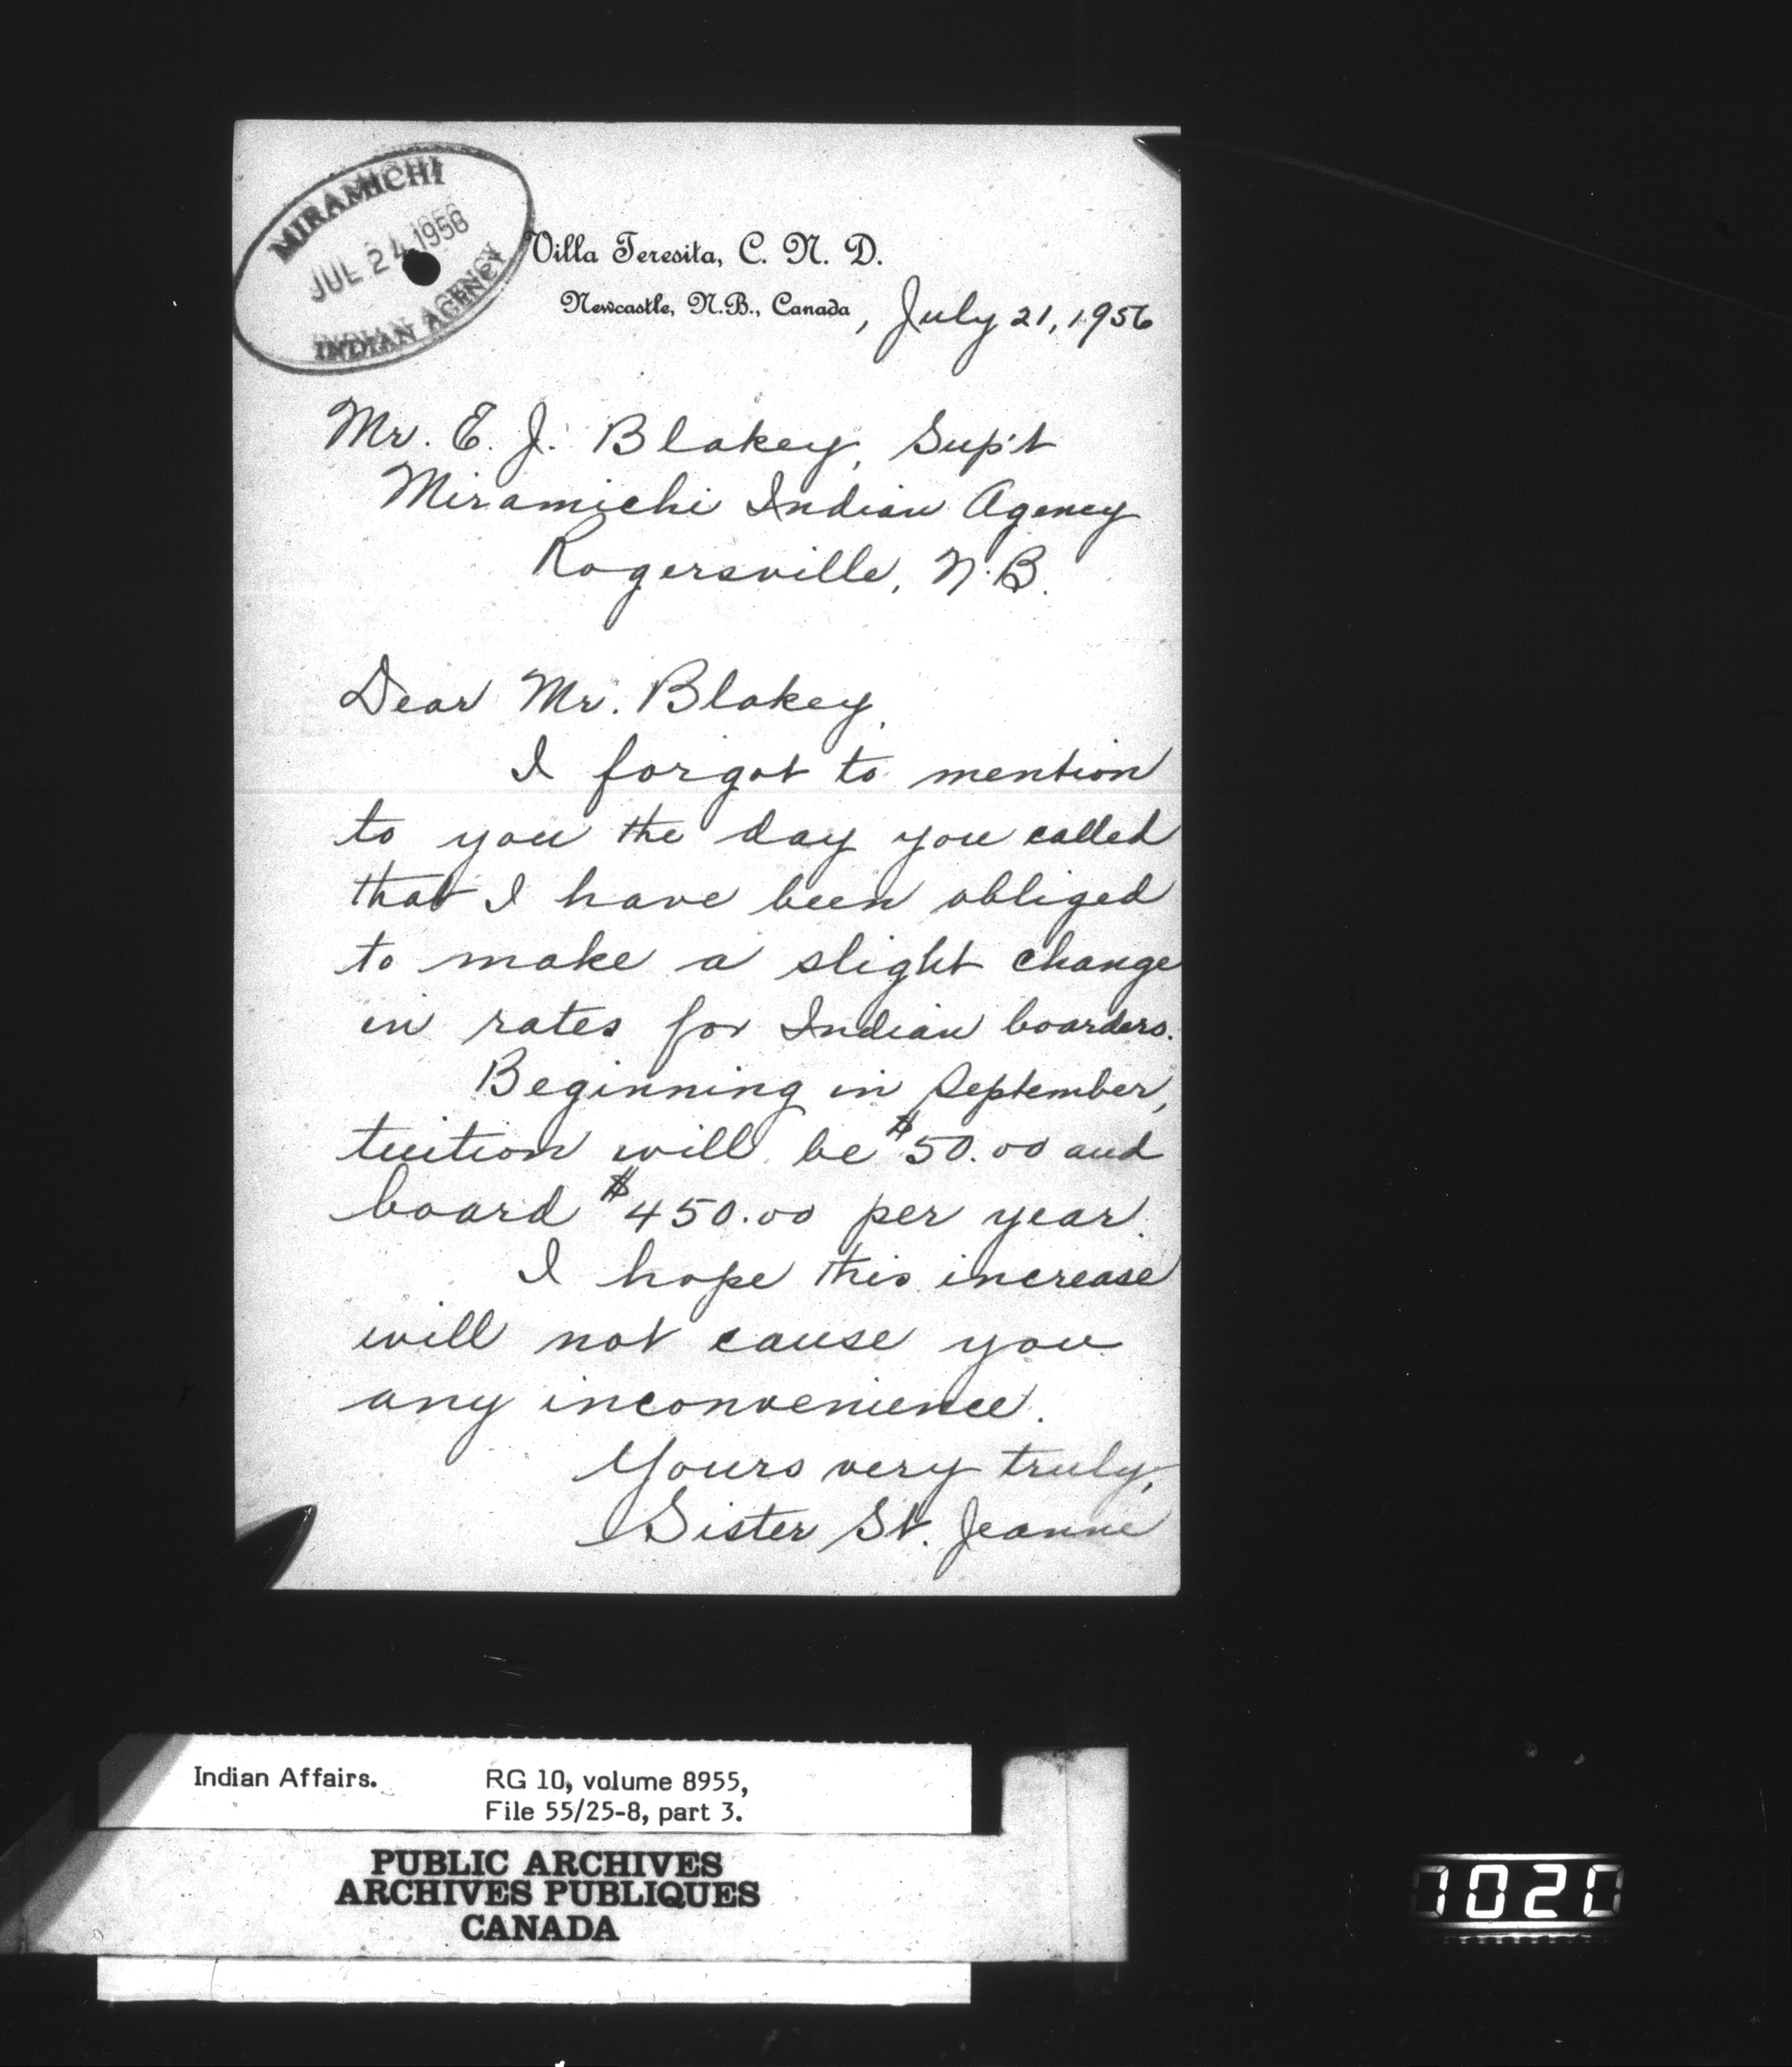 MIRAMICHI
JUL 24 1956
INDIAN AGENCY
Villa Teresita, C. N. D.
Newcastle, N.B., Canada, July 21, 1956
Mr. E. J. Blakey, Sup't
Miramichi Indian Agency
Rogersville, N.B.
Dear Mr. Blakey,
I forgot to mention
to you the day you called
that I have been obliged
to make a slight change
in rates for Indian boarders.
Beginning in September,
tuition will be $50.00 and
board $450.00 per year.
I hope this increase
will not cause you
any inconvenience.
Yours very truly,
Sister St. Jeanne
Indian Affairs. RG 10, volume 8955,
File 55/25-8, part 3.
PUBLIC ARCHIVES
ARCHIVES PUBLIQUES
CANADA
1020